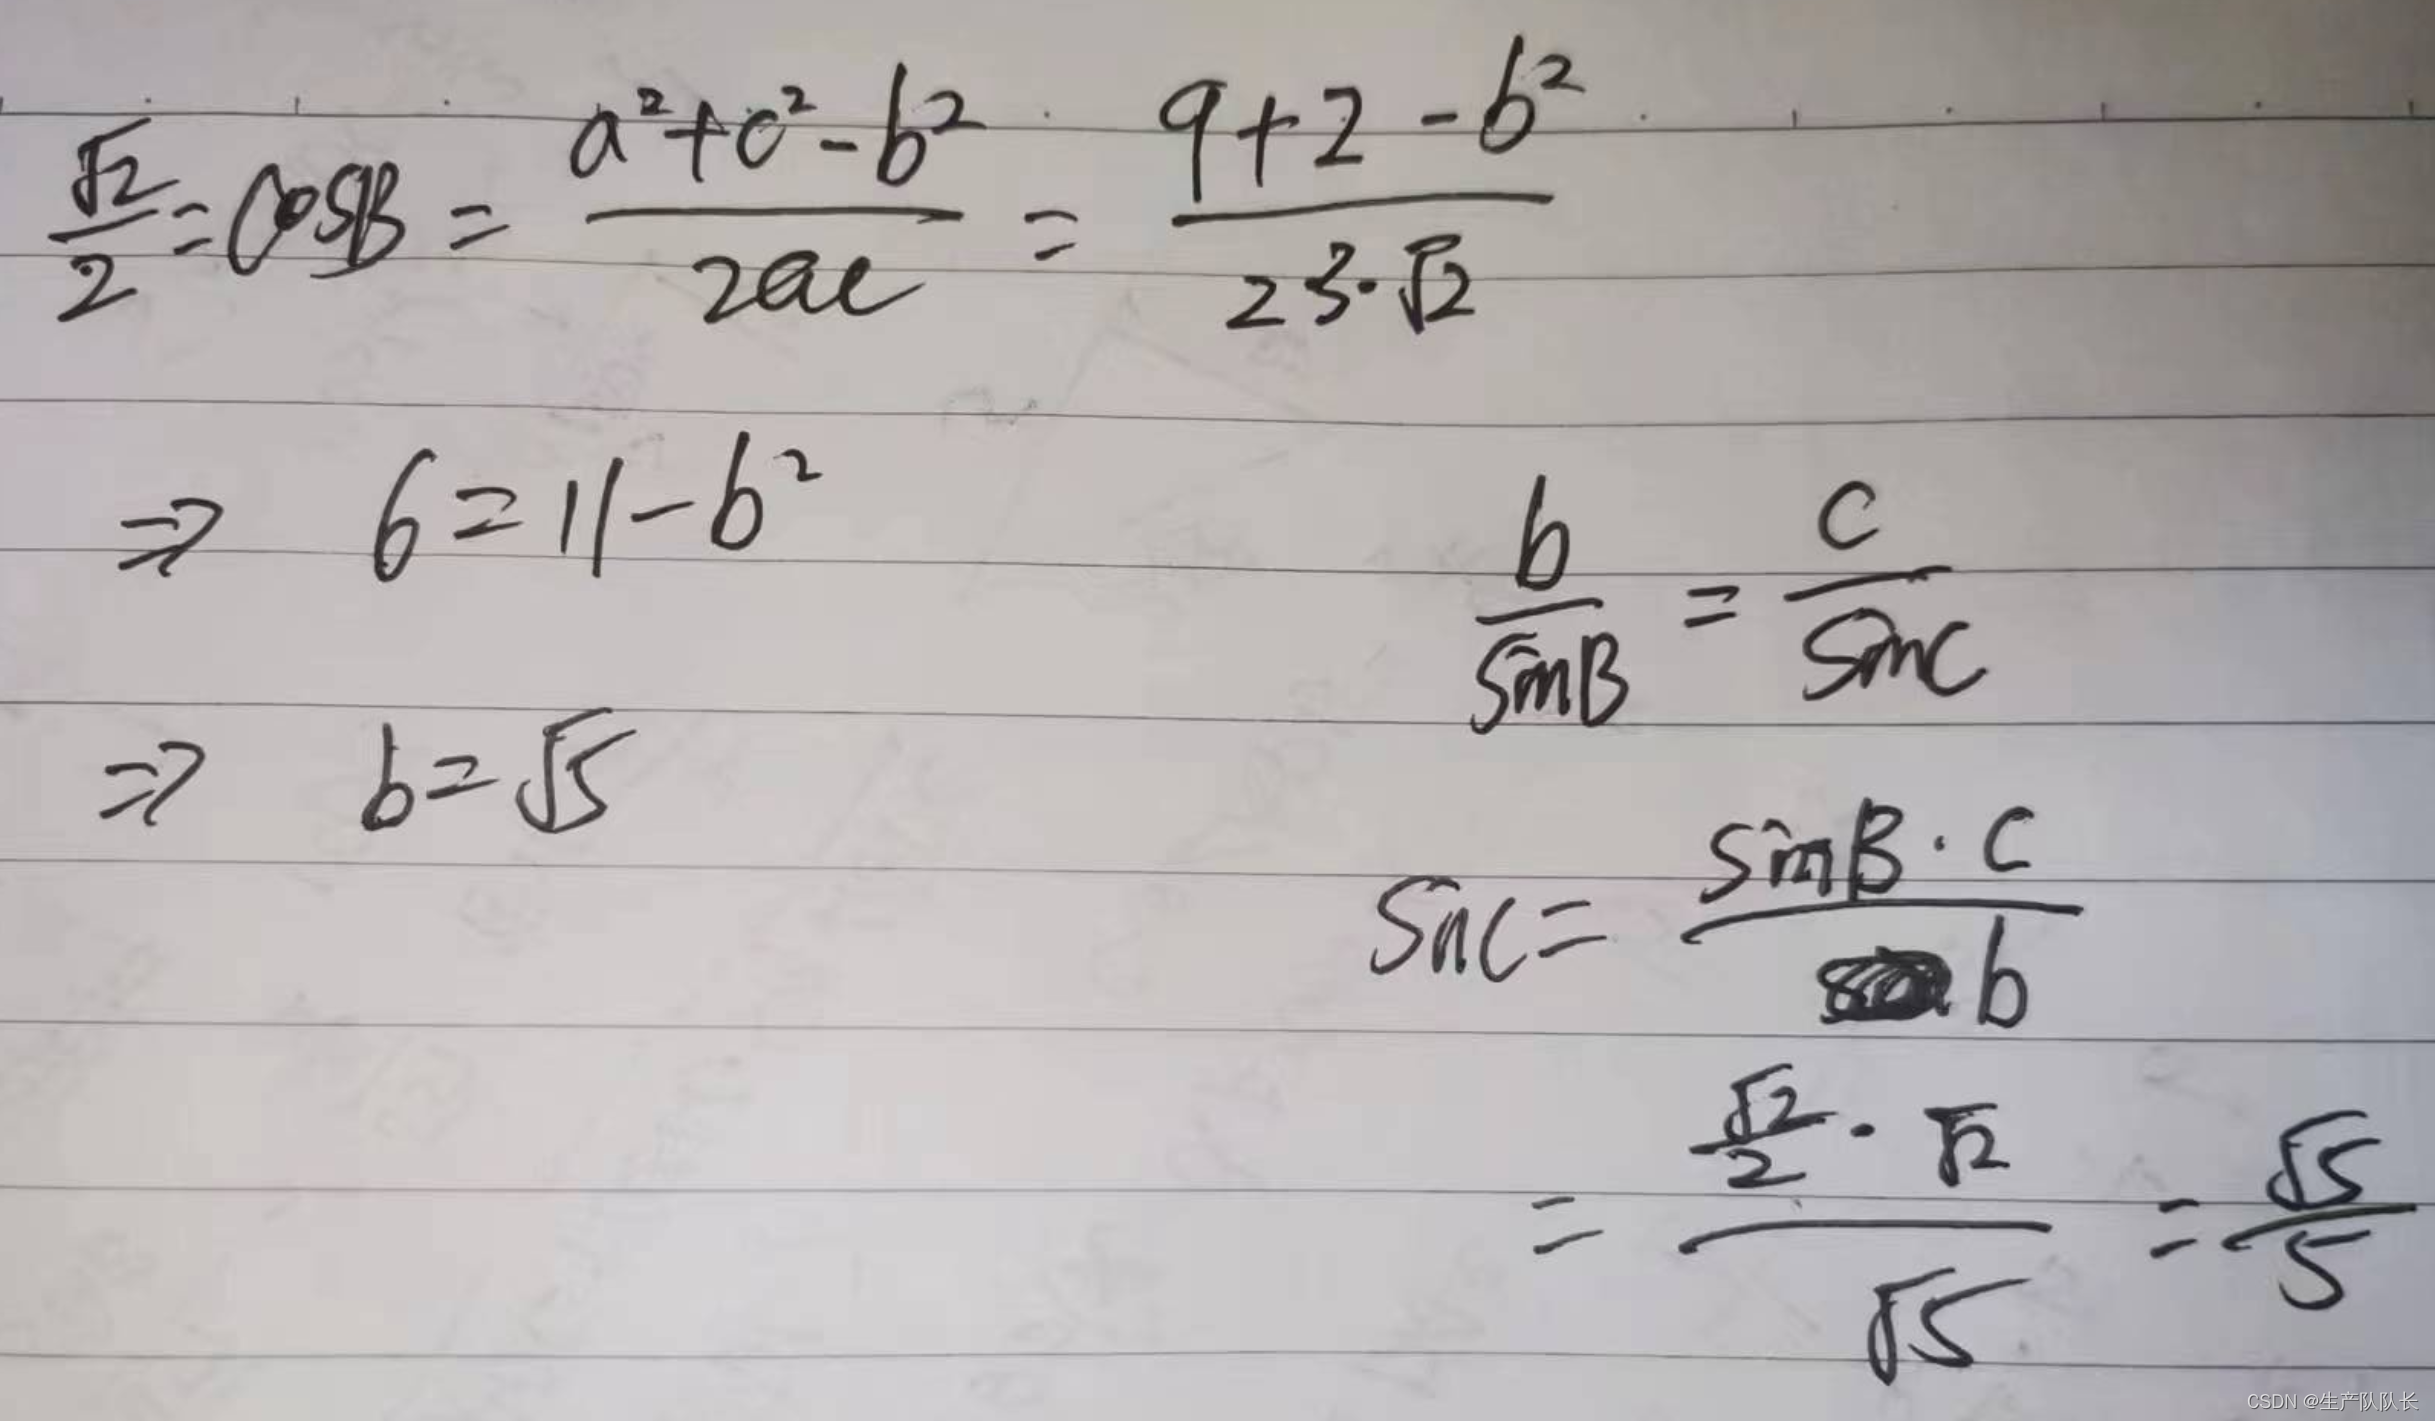 √2/2 = cosB = (a²+c²-b²)/(2ac) = (9+2-b²)/(2 3·√2)
⇒ 6 = 11-b²
⇒ b = √5
b/sinB = c/sinC
sinC = (sinB·c)/b
= (√2/2 · √2)/√5 = √5/5
CSDN @生产队队长